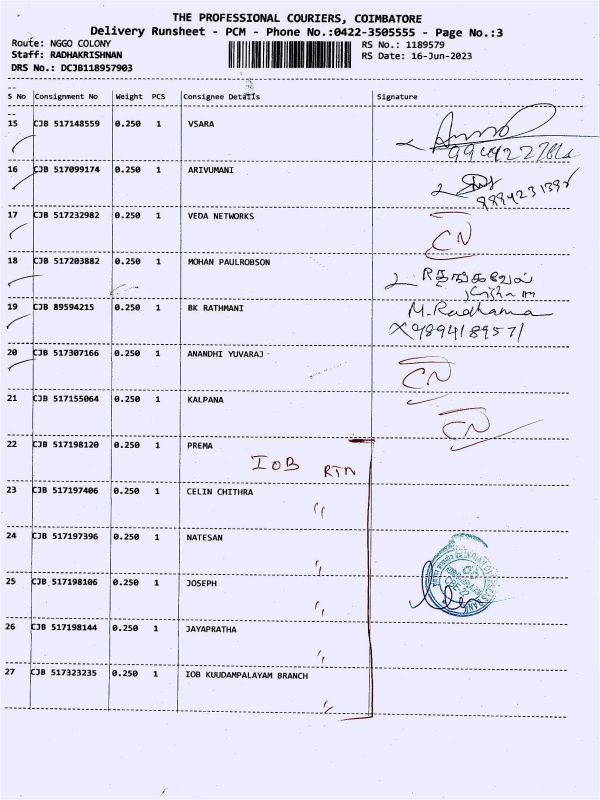 THE PROFESSIONAL COURIERS, COIMBATORE
Delivery Runsheet - PCM - Phone No.:0422-3505555 - Page No.:3
Route: NGGO COLONY RS No.: 1189579
Staff: RADHAKRISHNAN RS Date: 16-Jun-2023
DRS No.: DCJB118957903
S No Consignment No Weight PCS Consignee Details Signature
15 CJB 517148559 0.250 1 VSARA
16 CJB 517099174 0.250 1 ARIVUMANI
17 CJB 517232982 0.250 1 VEDA NETWORKS CN
18 CJB 517203882 0.250 1 MOHAN PAULROBSON
19 CJB 89594215 0.250 1 BK RATHMANI M.Radhama
9894189571
20 CJB 517307166 0.250 1 ANANDHI YUVARAJ CN
21 CJB 517155064 0.250 1 KALPANA CN
22 CJB 517198120 0.250 1 PREMA
IOB RTN
23 CJB 517197406 0.250 1 CELIN CHITHRA
"
24 CJB 517197396 0.250 1 NATESAN
"
25 CJB 517198106 0.250 1 JOSEPH
"
26 CJB 517198144 0.250 1 JAYAPRATHA
"
27 CJB 517323235 0.250 1 IOB KUUDAMPALAYAM BRANCH
"